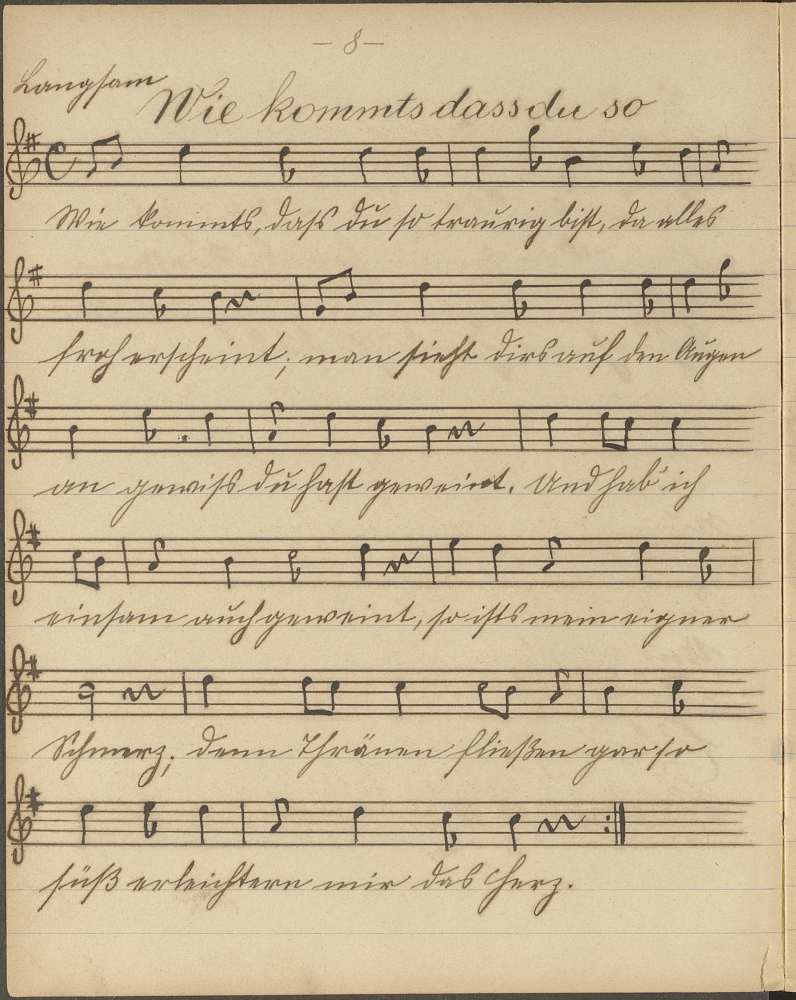 – 8 –
Langsam
Wie kommts dass du so
Wie kommts, dass du so traurig bist, da alles
froh erscheint; man sieht dirs auf den Augen
an gewiss du hast geweint. Und hab' ich
einsam auch geweint, so ists mein eigner
Schmerz; denn Thränen fließen gar so
süß erleichtern mir das Herz.